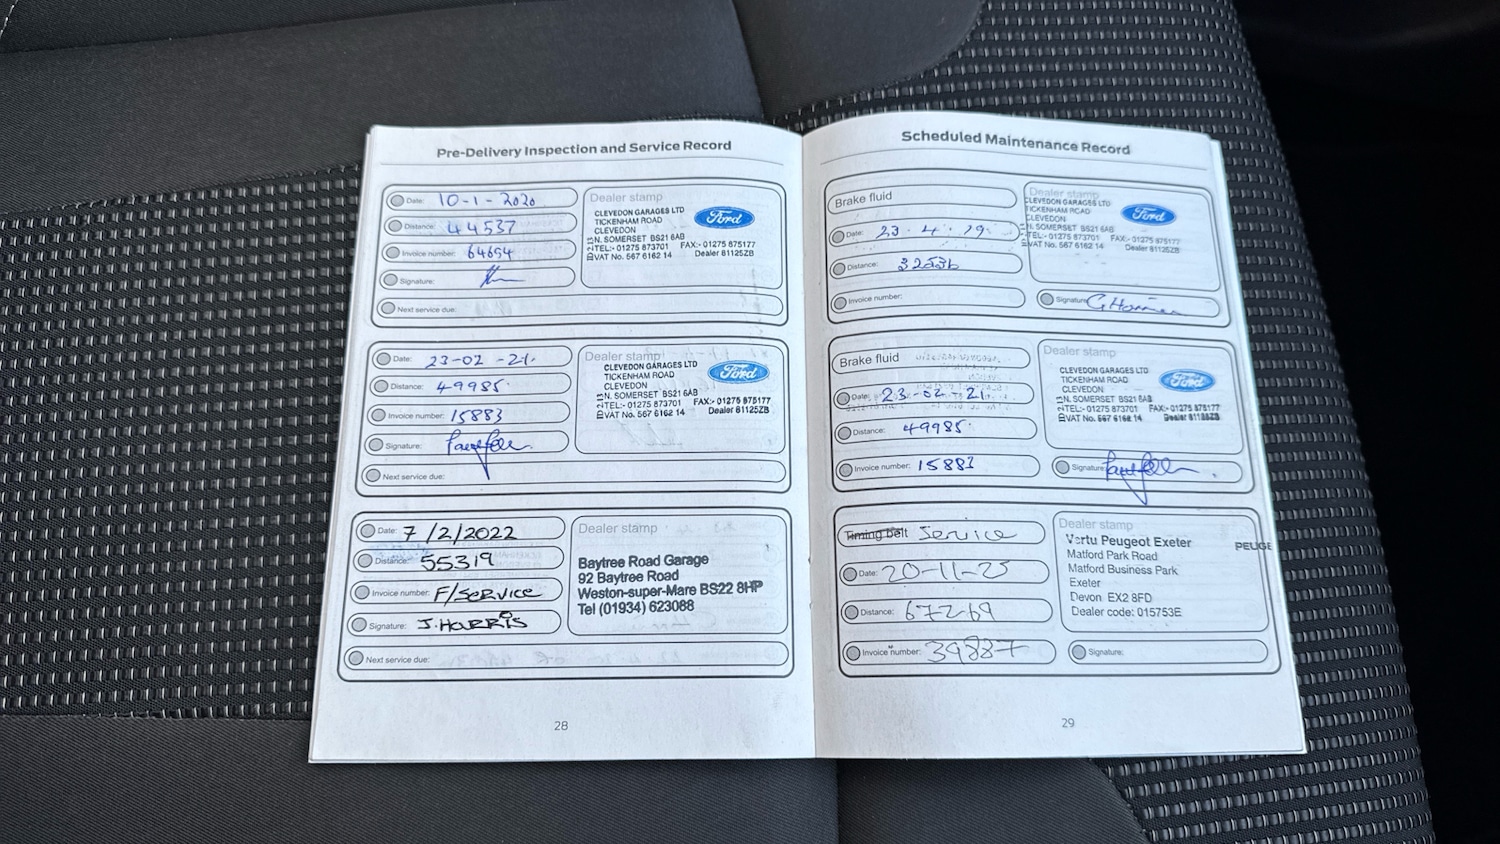 Pre-Delivery Inspection and Service Record
Date: 10-1-2020
Distance: 44537
Invoice number: 64654
Signature:
Next service due:
Dealer stamp
CLEVEDON GARAGES LTD
TICKENHAM ROAD
CLEVEDON
N. SOMERSET BS21 6AB
TEL:- 01275 873701 FAX:- 01275 875177
VAT No. 567 6162 14 Dealer 81125ZB
Ford
Date: 23-02-21.
Distance: 49985.
Invoice number: 15883
Signature:
Next service due:
Dealer stamp
CLEVEDON GARAGES LTD
TICKENHAM ROAD
CLEVEDON
N. SOMERSET BS21 6AB
TEL:- 01275 873701 FAX:- 01275 875177
VAT No. 567 6162 14 Dealer 81125ZB
Ford
Date: 7/2/2022
Distance: 55319
Invoice number: F/SERVICE
Signature: J.HARRIS
Next service due:
Dealer stamp
Baytree Road Garage
92 Baytree Road
Weston-super-Mare BS22 8HP
Tel (01934) 623088
28
Scheduled Maintenance Record
Brake fluid
Date: 23.4.19.
Distance:
Invoice number:
Dealer stamp
CLEVEDON GARAGES LTD
TICKENHAM ROAD
CLEVEDON
N. SOMERSET BS21 6AB
TEL:- 01275 873701 FAX:- 01275 875177
VAT No. 567 6162 14 Dealer 81125ZB
Ford
Signature:
Brake fluid
Date: 23-02-21
Distance: 49985.
Invoice number: 15883
Dealer stamp
CLEVEDON GARAGES LTD
TICKENHAM ROAD
CLEVEDON
N. SOMERSET BS21 6AB
TEL:- 01275 873701 FAX:- 01275 875177
VAT No. 567 6162 14 Dealer 81125ZB
Ford
Signature:
Timing belt Service
Date: 20-11-25
Distance: 67269
Invoice number: 39887
Dealer stamp
Vertu Peugeot Exeter
Matford Park Road
Matford Business Park
Exeter
Devon EX2 8FD
Dealer code: 015753E
PEUGE
Signature:
29